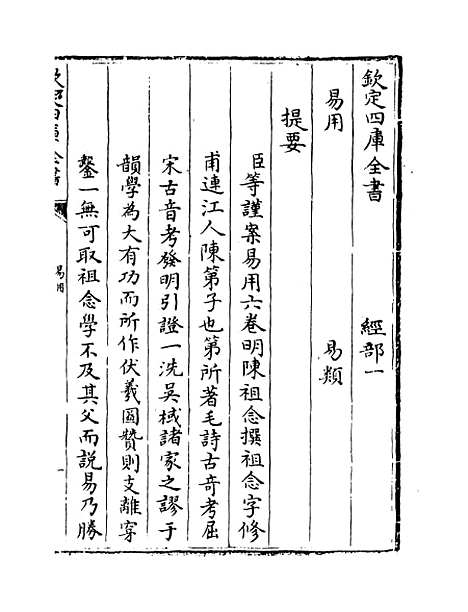 欽定四庫全書　經部一
易用　易類
提要
臣等謹案易用六卷明陳祖念撰祖念字修
甫連江人陳第子也第所著毛詩古音考屈
宋古音考發明引證一洗吳棫諸家之謬于
韻學為大有功而所作伏羲圖贊則支離穿
鑿一無可取祖念學不及其父而說易乃勝
欽定四庫全書
易用
一